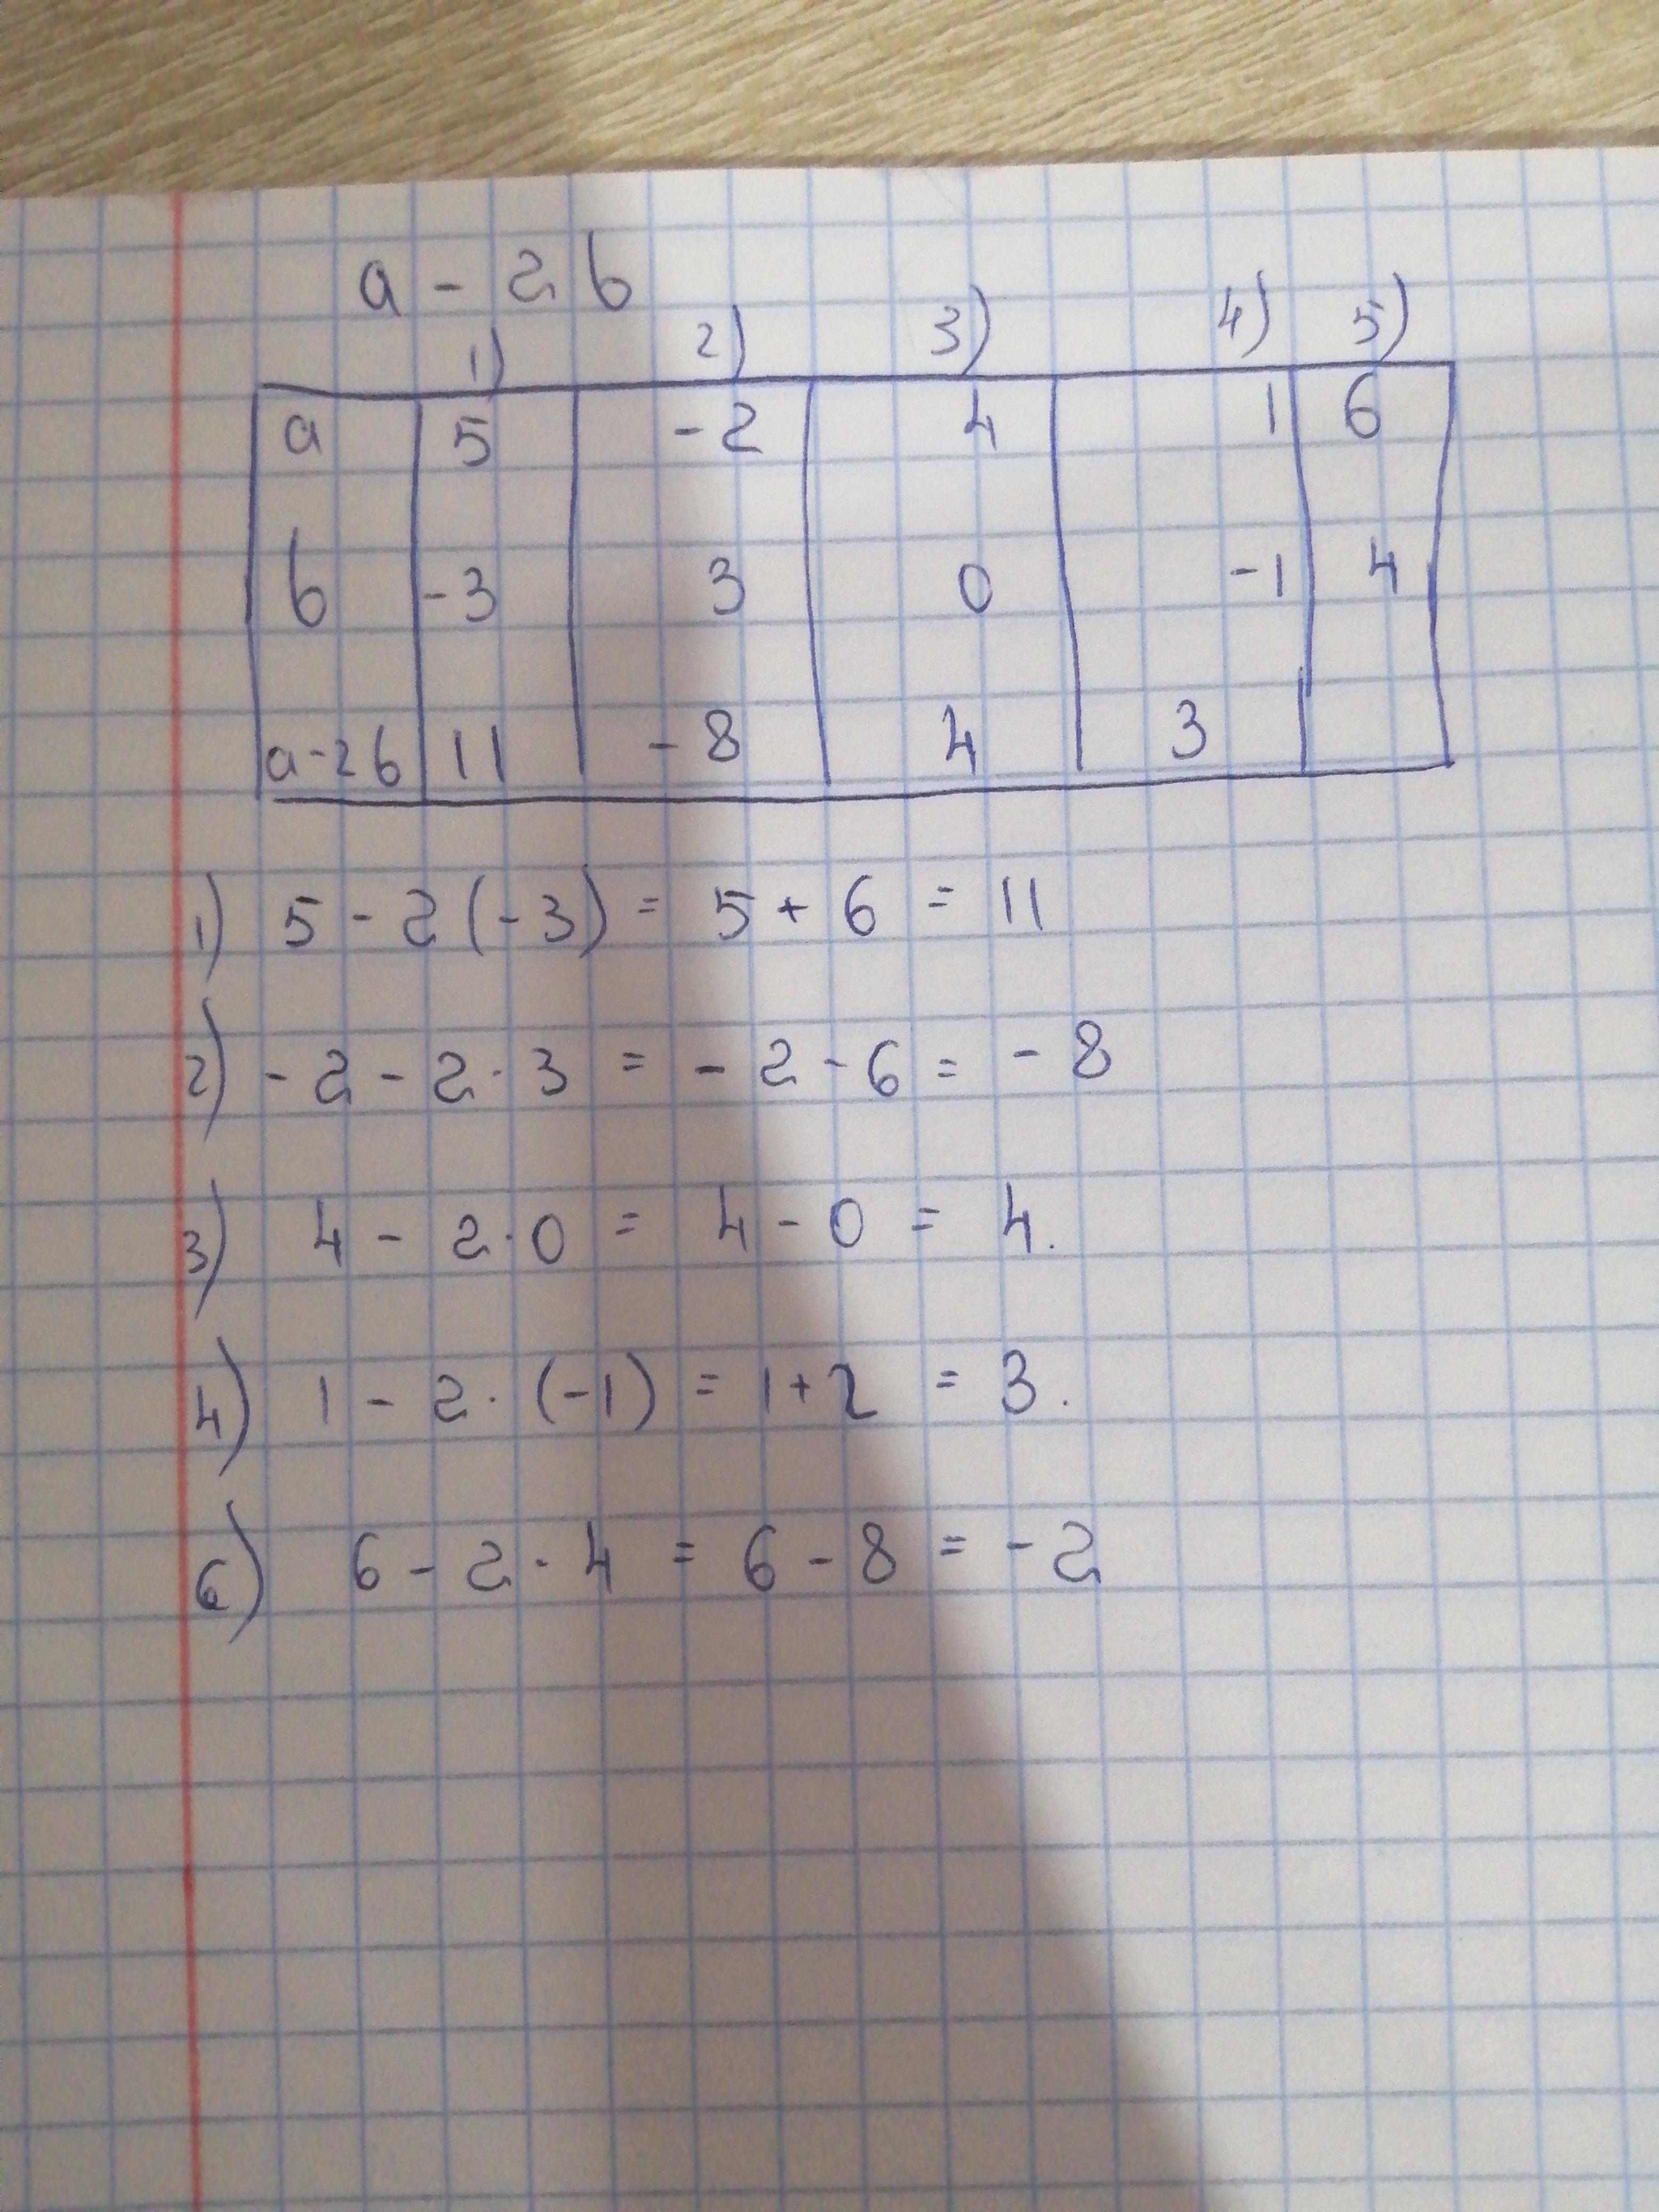 a - 2b
1) 2) 3) 4) 5)
a 5 -2 4 1 6
b -3 3 0 -1 4
a-2b 11 -8 4 3
1) 5 - 2(-3) = 5 + 6 = 11
2) -2 - 2·3 = -2 - 6 = -8
3) 4 - 2·0 = 4 - 0 = 4.
4) 1 - 2·(-1) = 1+2 = 3.
6) 6 - 2·4 = 6 - 8 = -2